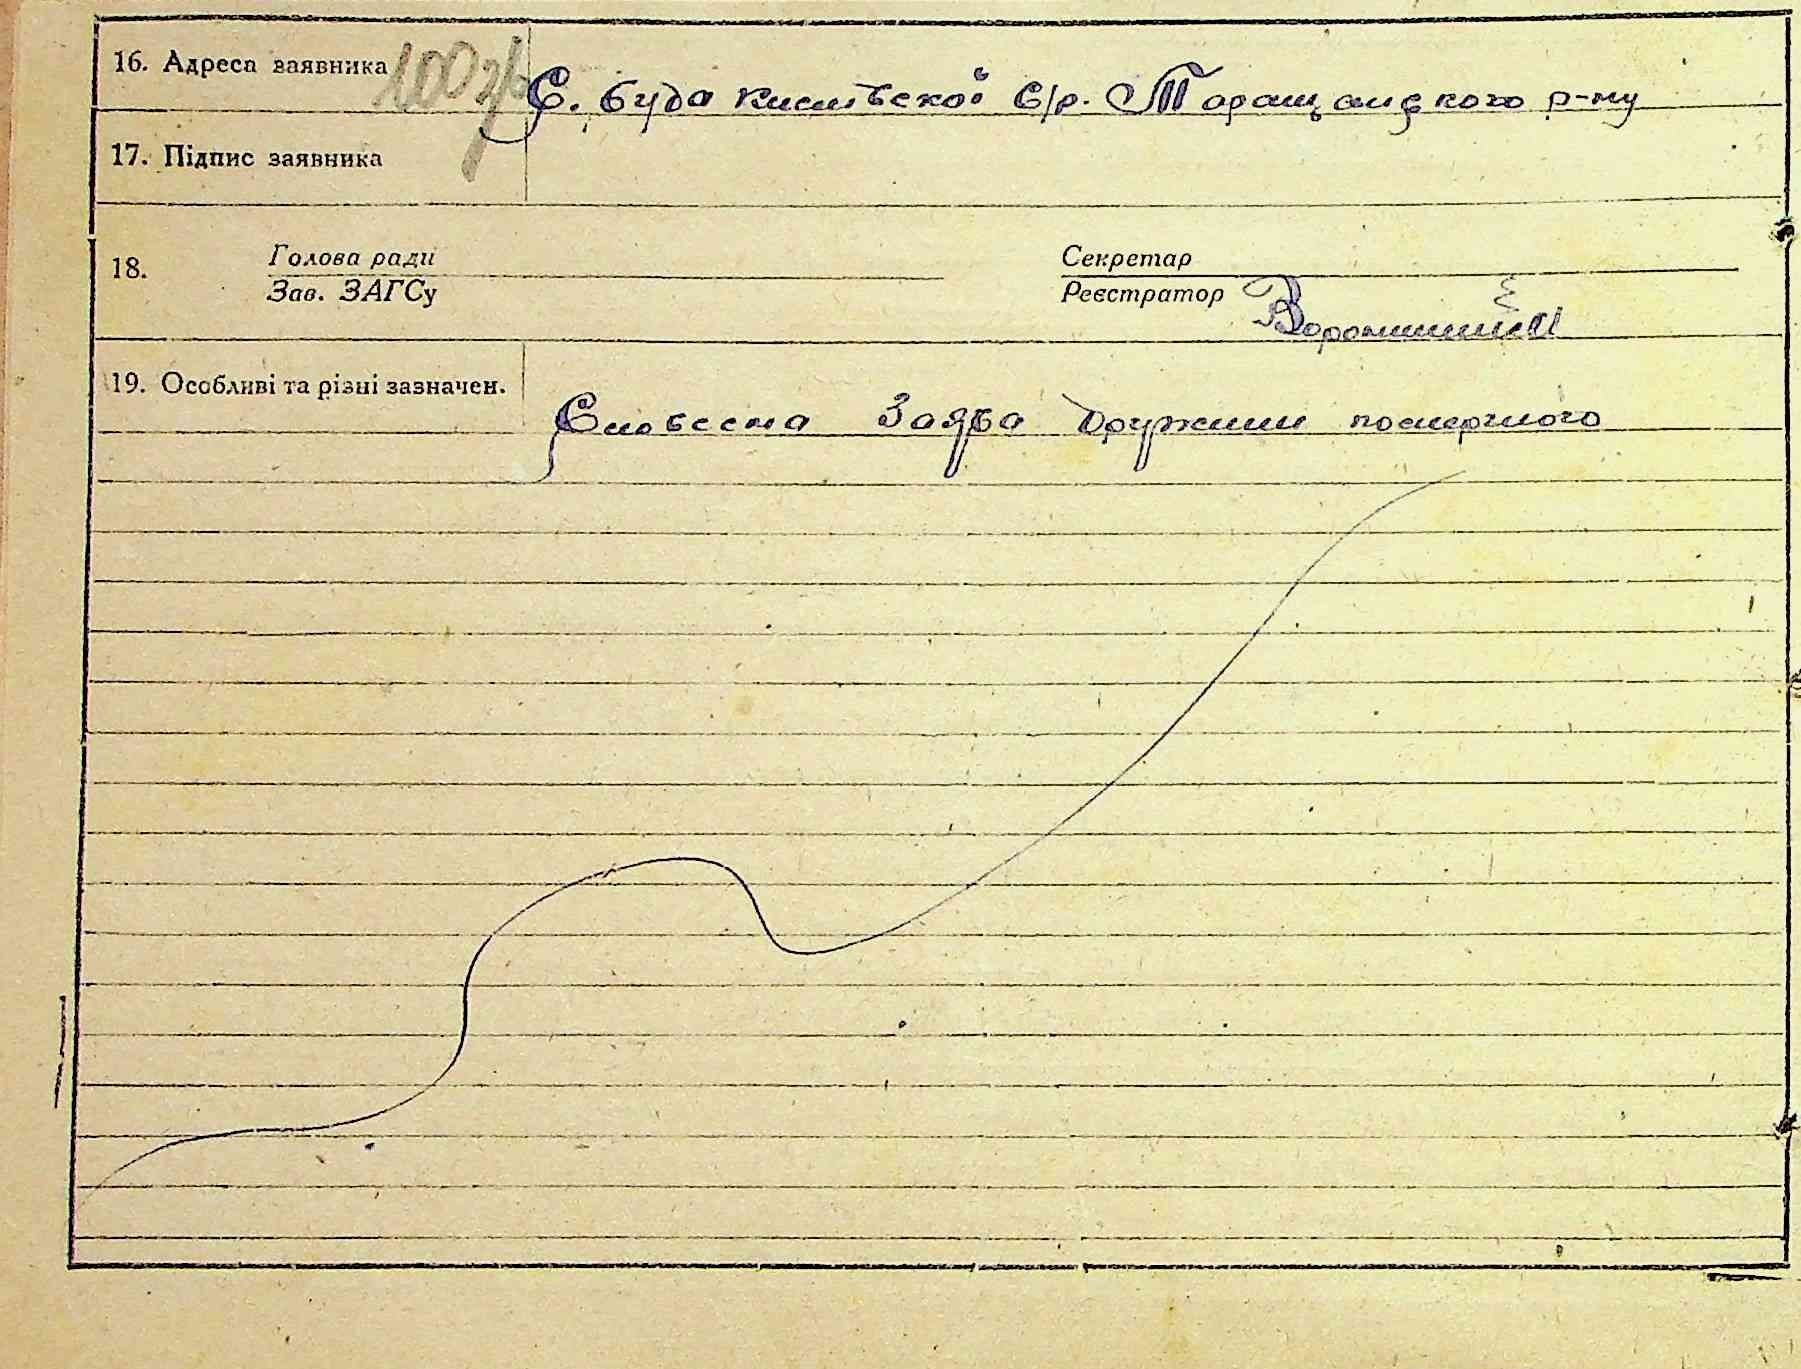 16. Адреса заявника С. Буда Кислівської С/р. Таращанського р-ну
17. Підпис заявника
18. Голова ради Секретар
Зав. ЗАГСу Реєстратор
19. Особливі та різні зазначен. Словесна Заява дружини померлого